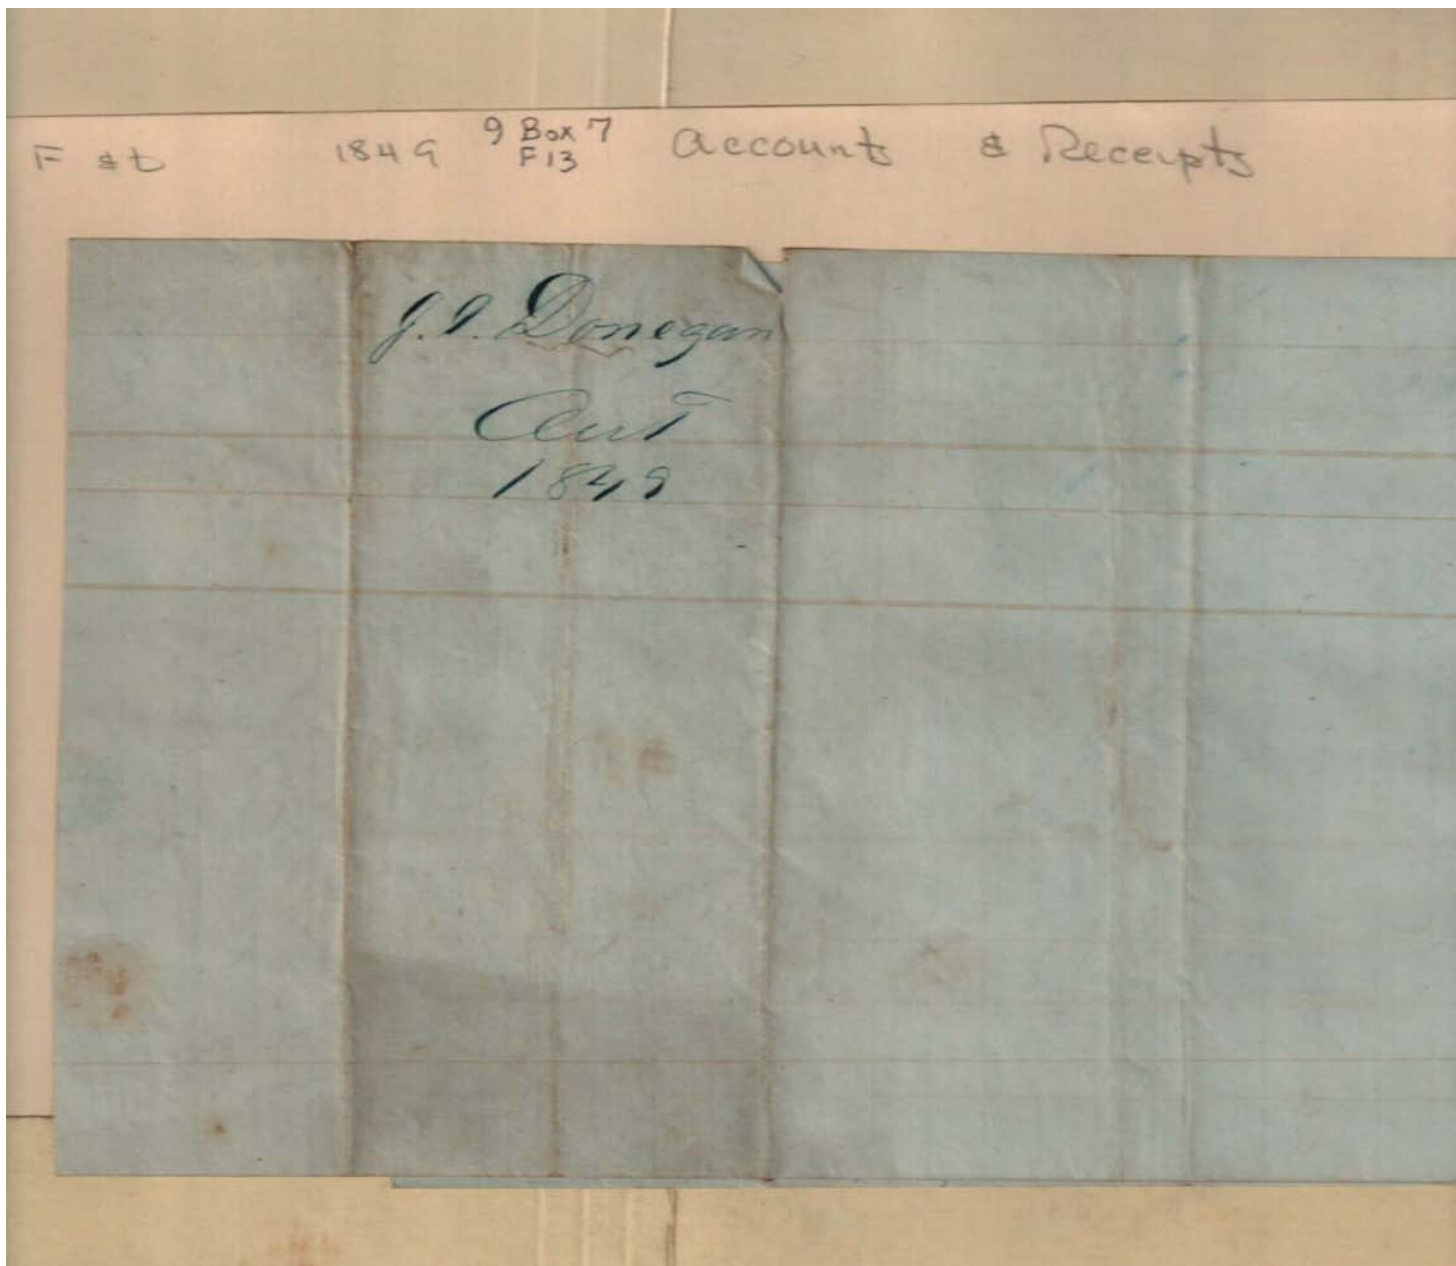 F & t 1849 9 Box 7 Accounts & Receipts
F13
J. I. Donegan
Acct
1849